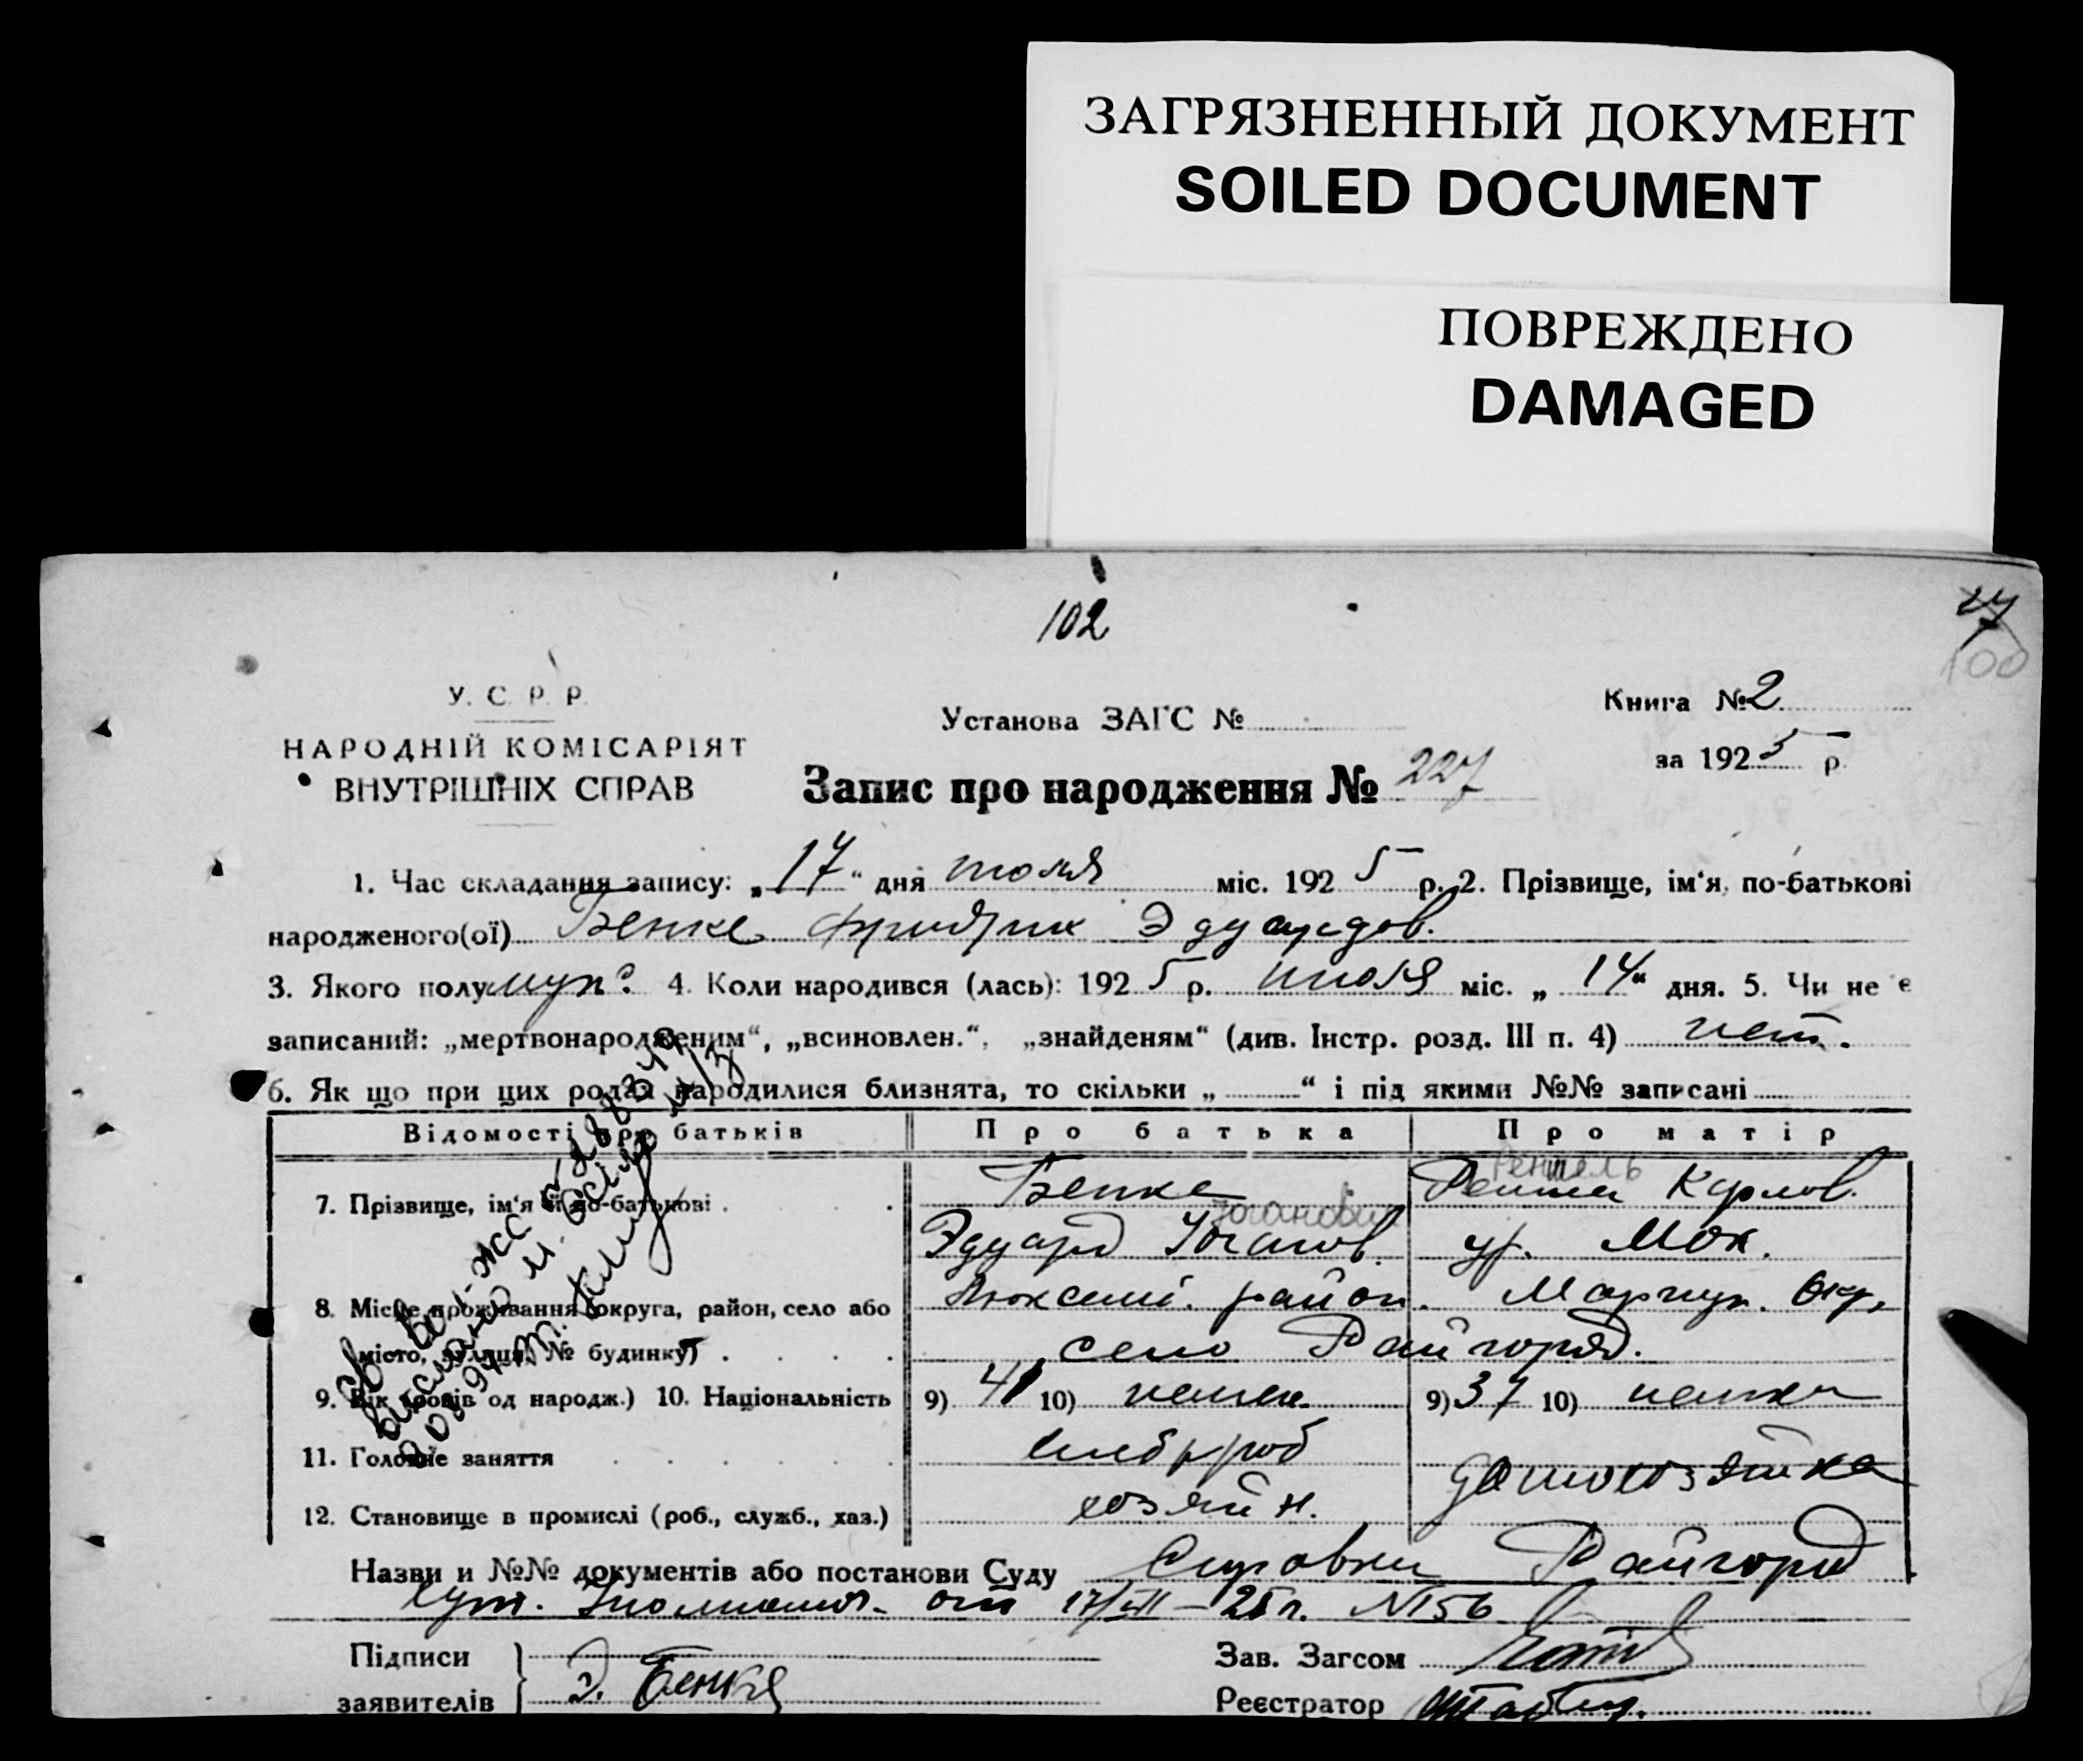 ЗАГРЯЗНЕННЫЙ ДОКУМЕНТ
SOILED DOCUMENT
ПОВРЕЖДЕНО
DAMAGED
102
27
100
У. С. Р. Р.
НАРОДНІЙ КОМІСАРІЯТ
ВНУТРІШНІХ СПРАВ
Установа ЗАГС №
Книга № 2
за 1925 р.
Запис про народження № 227
1. Час складання запису: „17“ дня июля міс. 1925 р. 2. Прізвище, ім‘я, по-батькові
народженого(ої) Бенке Фридрих Эдуардов.
3. Якого полу муж. 4. Коли народився (лась): 1925 р. июля міс. „14“ дня. 5. Чи не є
записаний: „мертвонародженим“, „всиновлен.“, „знайденям“ (див. Інстр. розд. III п. 4) нет.
6. Як що при цих родах народилися близнята, то скільки „ “ і під якими №№ записані
Відомості про батьків Про батька Про матір
7. Прізвище, ім‘я й по-батькові
Бенке
Эдуард Иоганов.
Иоганович
Карлов.
ур.
8. Місце проживання (округа, район, село або
місто, вулиця, № будинку)
Люксемб. район. Мариуп. Окр,
село Райгород.
9. Вік (років од народж.) 10. Національність 9) 41 10) немец. 9) 37 10) немка
11. Головне заняття
хлебороб
домохозяйка
12. Становище в промислі (роб., служб., хаз.)
хозяйн.
Назви и №№ документів або постанови Суду Справки Райгород
от 17/VII – 25 г. № 156
Підписи
заявителів
Э. Бенке
Зав. Загсом
Реєстратор